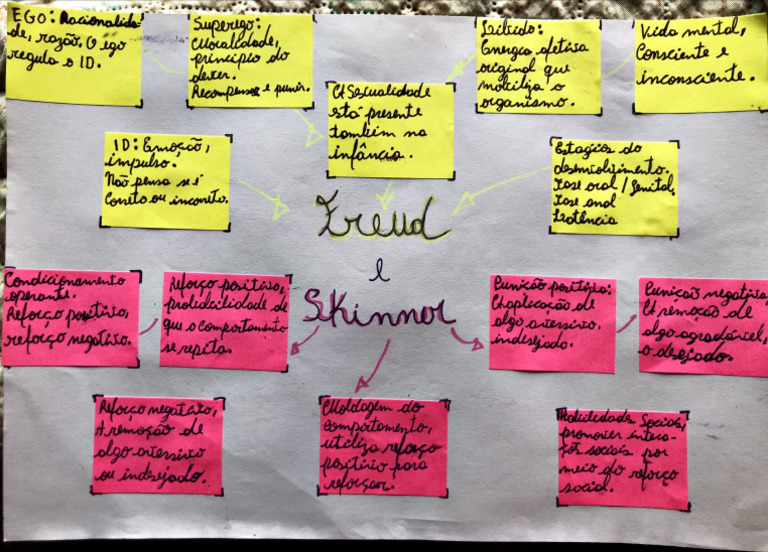 EGO: Racionalida-
de, razão. O ego
regula o ID.
Superego:
Moralidade,
princípio do
dever.
Recompensar e punir.
A Sexualidade
está presente
também na
infância.
Libido:
Energia afetiva
original que
mobiliza o
organismo.
Vida mental,
Consciente e
inconsciente.
ID: Emoção,
impulso.
Não pensa se é
Correto ou incorreto.
Estágios do
desenvolvimento.
Fase oral / Genital,
Fase anal
Latência
Freud
e
Skinner
Condicionamento
operante.
Reforço positivo,
reforço negativo.
Reforço positivo,
probabilidade de
que o comportamento
se repita.
Punição positiva:
A aplicação de
algo aversivo,
indesejado.
Punição negativa,
A remoção de
algo agradável,
o desejado.
Reforço negativo,
A remoção de
algo aversivo
ou indesejado.
Moldagem do
comportamento,
utiliza reforço
positivo para
reforçar.
Habilidades Sociais,
promover intera-
ções sociais por
meio do reforço
social.